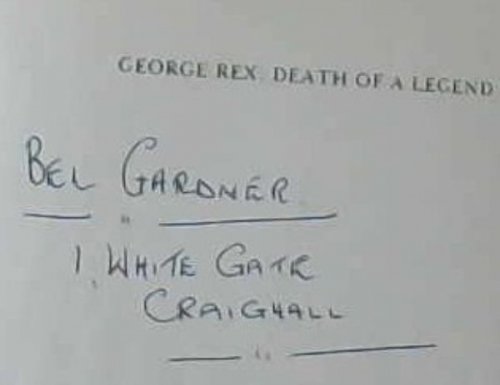 GEORGE REX: DEATH OF A LEGEND
BEL GARDNER
1, WHITE GATE
CRAIGHALL